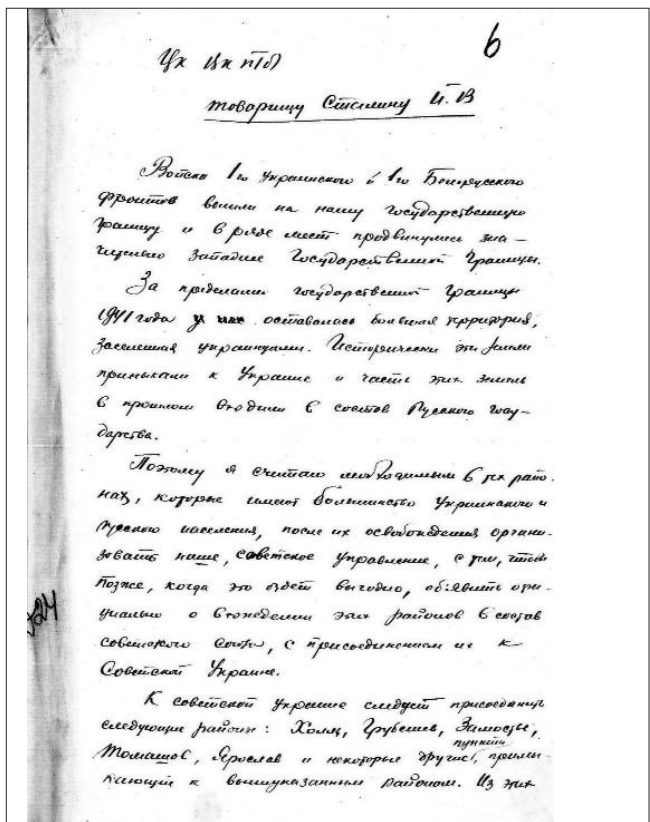 6
ЦК ВКП(б)
товарищу Сталину И. В
Войска 1го Украинского и 1го Белорусского
фронтов вышли на нашу государственную
границу и в ряде мест продвинулись зна-
чительно западнее государственной границы.
За пределами государственной границы
1941 года у нас оставалась большая территория,
заселенная украинцами. Исторически эти земли
примыкали к Украине и часть этих земель
в прошлом входили в состав Русского госу-
дарства.
Поэтому я считаю необходимым в тех райо-
нах, которые имеют большинство Украинского и
русского населения, после их освобождения органи-
зовать наше, советское управление, с тем, чтобы
позже, когда это будет выгодно, объявить офи-
циально о вхождении этих районов в состав
советского союза, с присоединением их к
Советской Украине.
К советской Украине следует присоединить
следующие районы: Холм, Грубешев, Замостье,
Томашов, Ярослав и некоторые другие пункты, примы-
кающие к вышеуказанным районам. Из этих